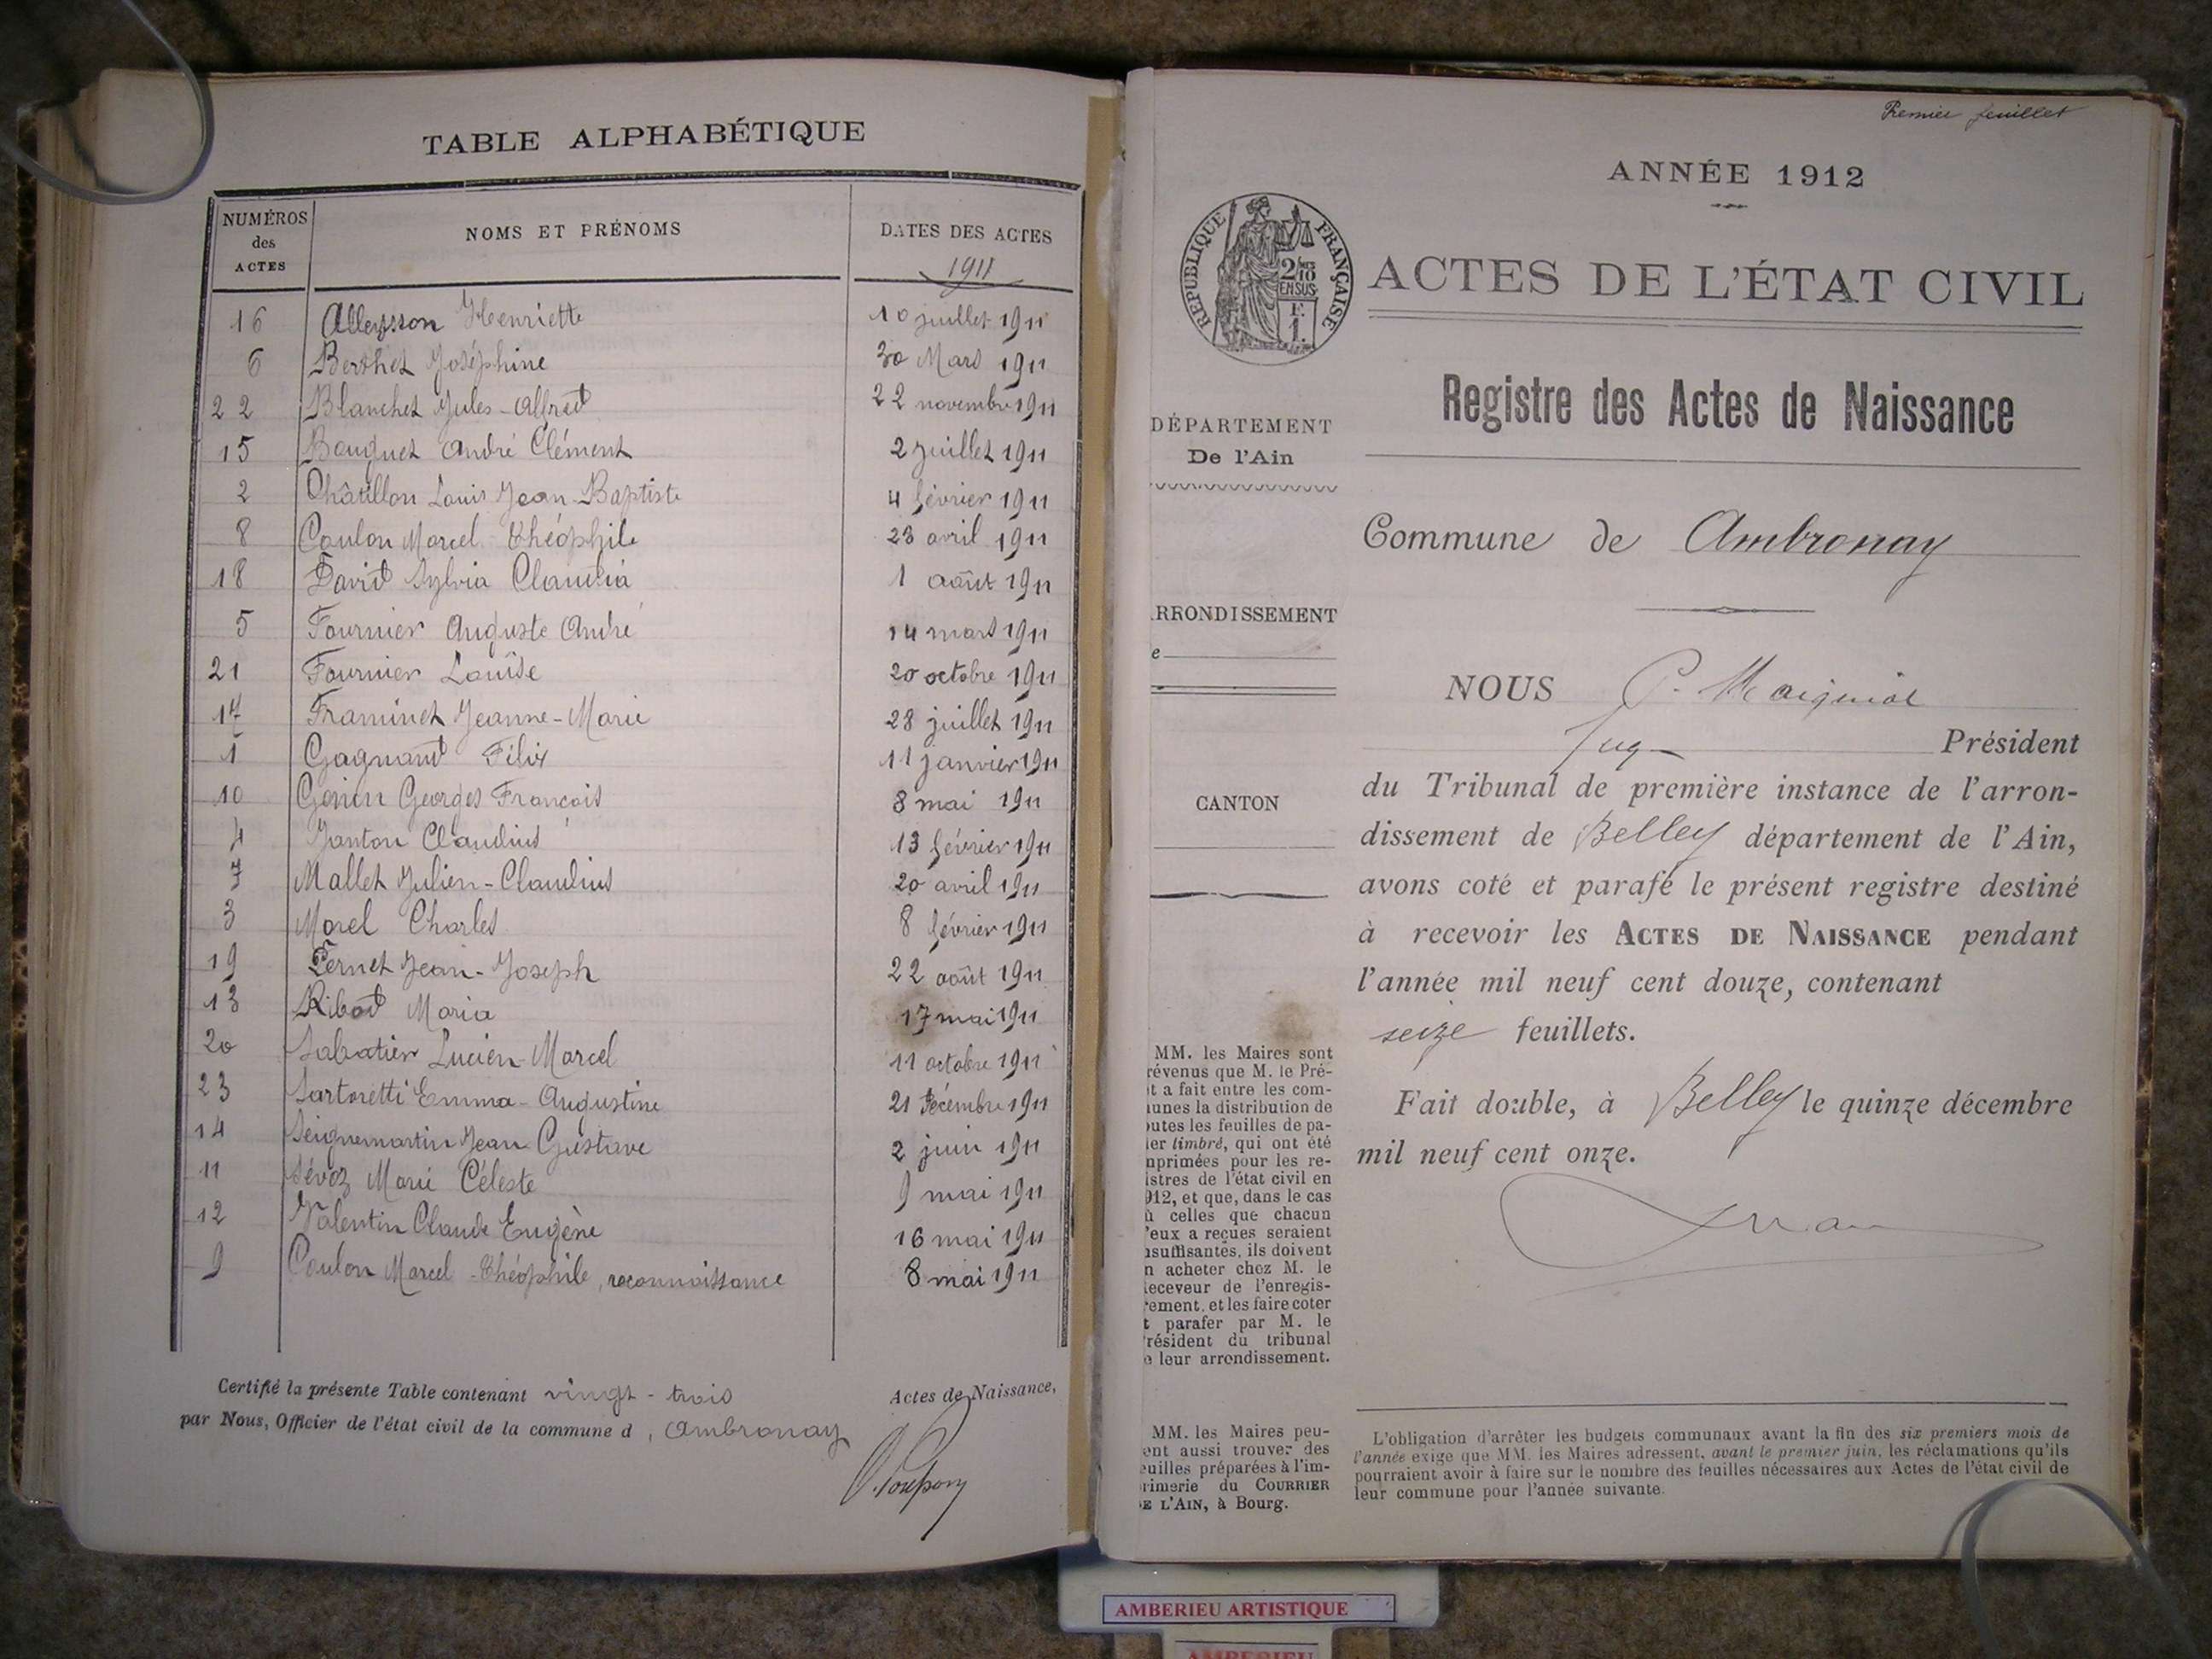 TABLE ALPHABÉTIQUE
NUMÉROS des ACTES
NOMS ET PRÉNOMS
DATES DES ACTES
1911
16 Alleysson Henriette 10 juillet 1911
6 Berthet Joséphine 30 Mars 1911
22 Blanchet Jules-Alfred 22 novembre 1911
15 Bouquet André Clément 2 juillet 1911
2 Châtillon Louis Jean-Baptiste 4 février 1911
8 Coulon Marcel Théophile 23 avril 1911
18 David Sylvia Claudia 1 août 1911
5 Fournier Auguste André 14 mars 1911
21 Fournier Louise 20 octobre 1911
17 Framinet Jeanne-Marie 28 juillet 1911
1 Gagnaud Félix 11 janvier 1911
10 Genin Georges François 8 mai 1911
4 Janton Claudius 13 février 1911
7 Mallet Julien-Claudius 20 avril 1911
3 Morel Charles 8 février 1911
19 Pernet Jean-Joseph 22 août 1911
13 Ribod Maria 17 mai 1911
20 Sabatier Lucien-Marcel 11 octobre 1911
23 Sartoretti Emma-Augustine 21 décembre 1911
14 Seignemartin Jean Gustave 2 juin 1911
11 Sévoz Marie Céleste 9 mai 1911
12 Valentin Claude Eugène 16 mai 1911
9 Coulon Marcel-Théophile, reconnaissance 8 mai 1911
Certifié la présente Table contenant vingt-trois Actes de Naissance,
par Nous, Officier de l'état civil de la commune d'Ambronay
Premier feuillet
ANNÉE 1912
RÉPUBLIQUE FRANÇAISE
2/10
EN SUS
F.
1.
ACTES DE L'ÉTAT CIVIL
Registre des Actes de Naissance
DÉPARTEMENT
De l'Ain
RRONDISSEMENT
e
CANTON
Commune de Ambronay
NOUS P.
Juge Président
du Tribunal de première instance de l'arron-
dissement de Belley département de l'Ain,
avons coté et parafé le présent registre destiné
à recevoir les ACTES DE NAISSANCE pendant
l'année mil neuf cent douze, contenant
seize feuillets.
Fait double, à Belley le quinze décembre
mil neuf cent onze.
MM. les Maires sont
révenus que M. le Pré-
t a fait entre les com-
unes la distribution de
utes les feuilles de pa-
ier timbré, qui ont été
mprimées pour les re-
istres de l'état civil en
912, et que, dans le cas
ù celles que chacun
'eux a reçues seraient
nsuffisantes, ils doivent
n acheter chez M. le
eceveur de l'enregis-
rement, et les faire coter
t parafer par M. le
résident du tribunal
e leur arrondissement.
MM. les Maires peu-
ent aussi trouver des
euilles préparées à l'im-
rimerie du COURRIER
E L'AIN, à Bourg.
L'obligation d'arrêter les budgets communaux avant la fin des six premiers mois de
l'année exige que MM. les Maires adressent, avant le premier juin, les réclamations qu'ils
pourraient avoir à faire sur le nombre des feuilles nécessaires aux Actes de l'état civil de
leur commune pour l'année suivante.
AMBERIEU ARTISTIQUE
AMBERIEU